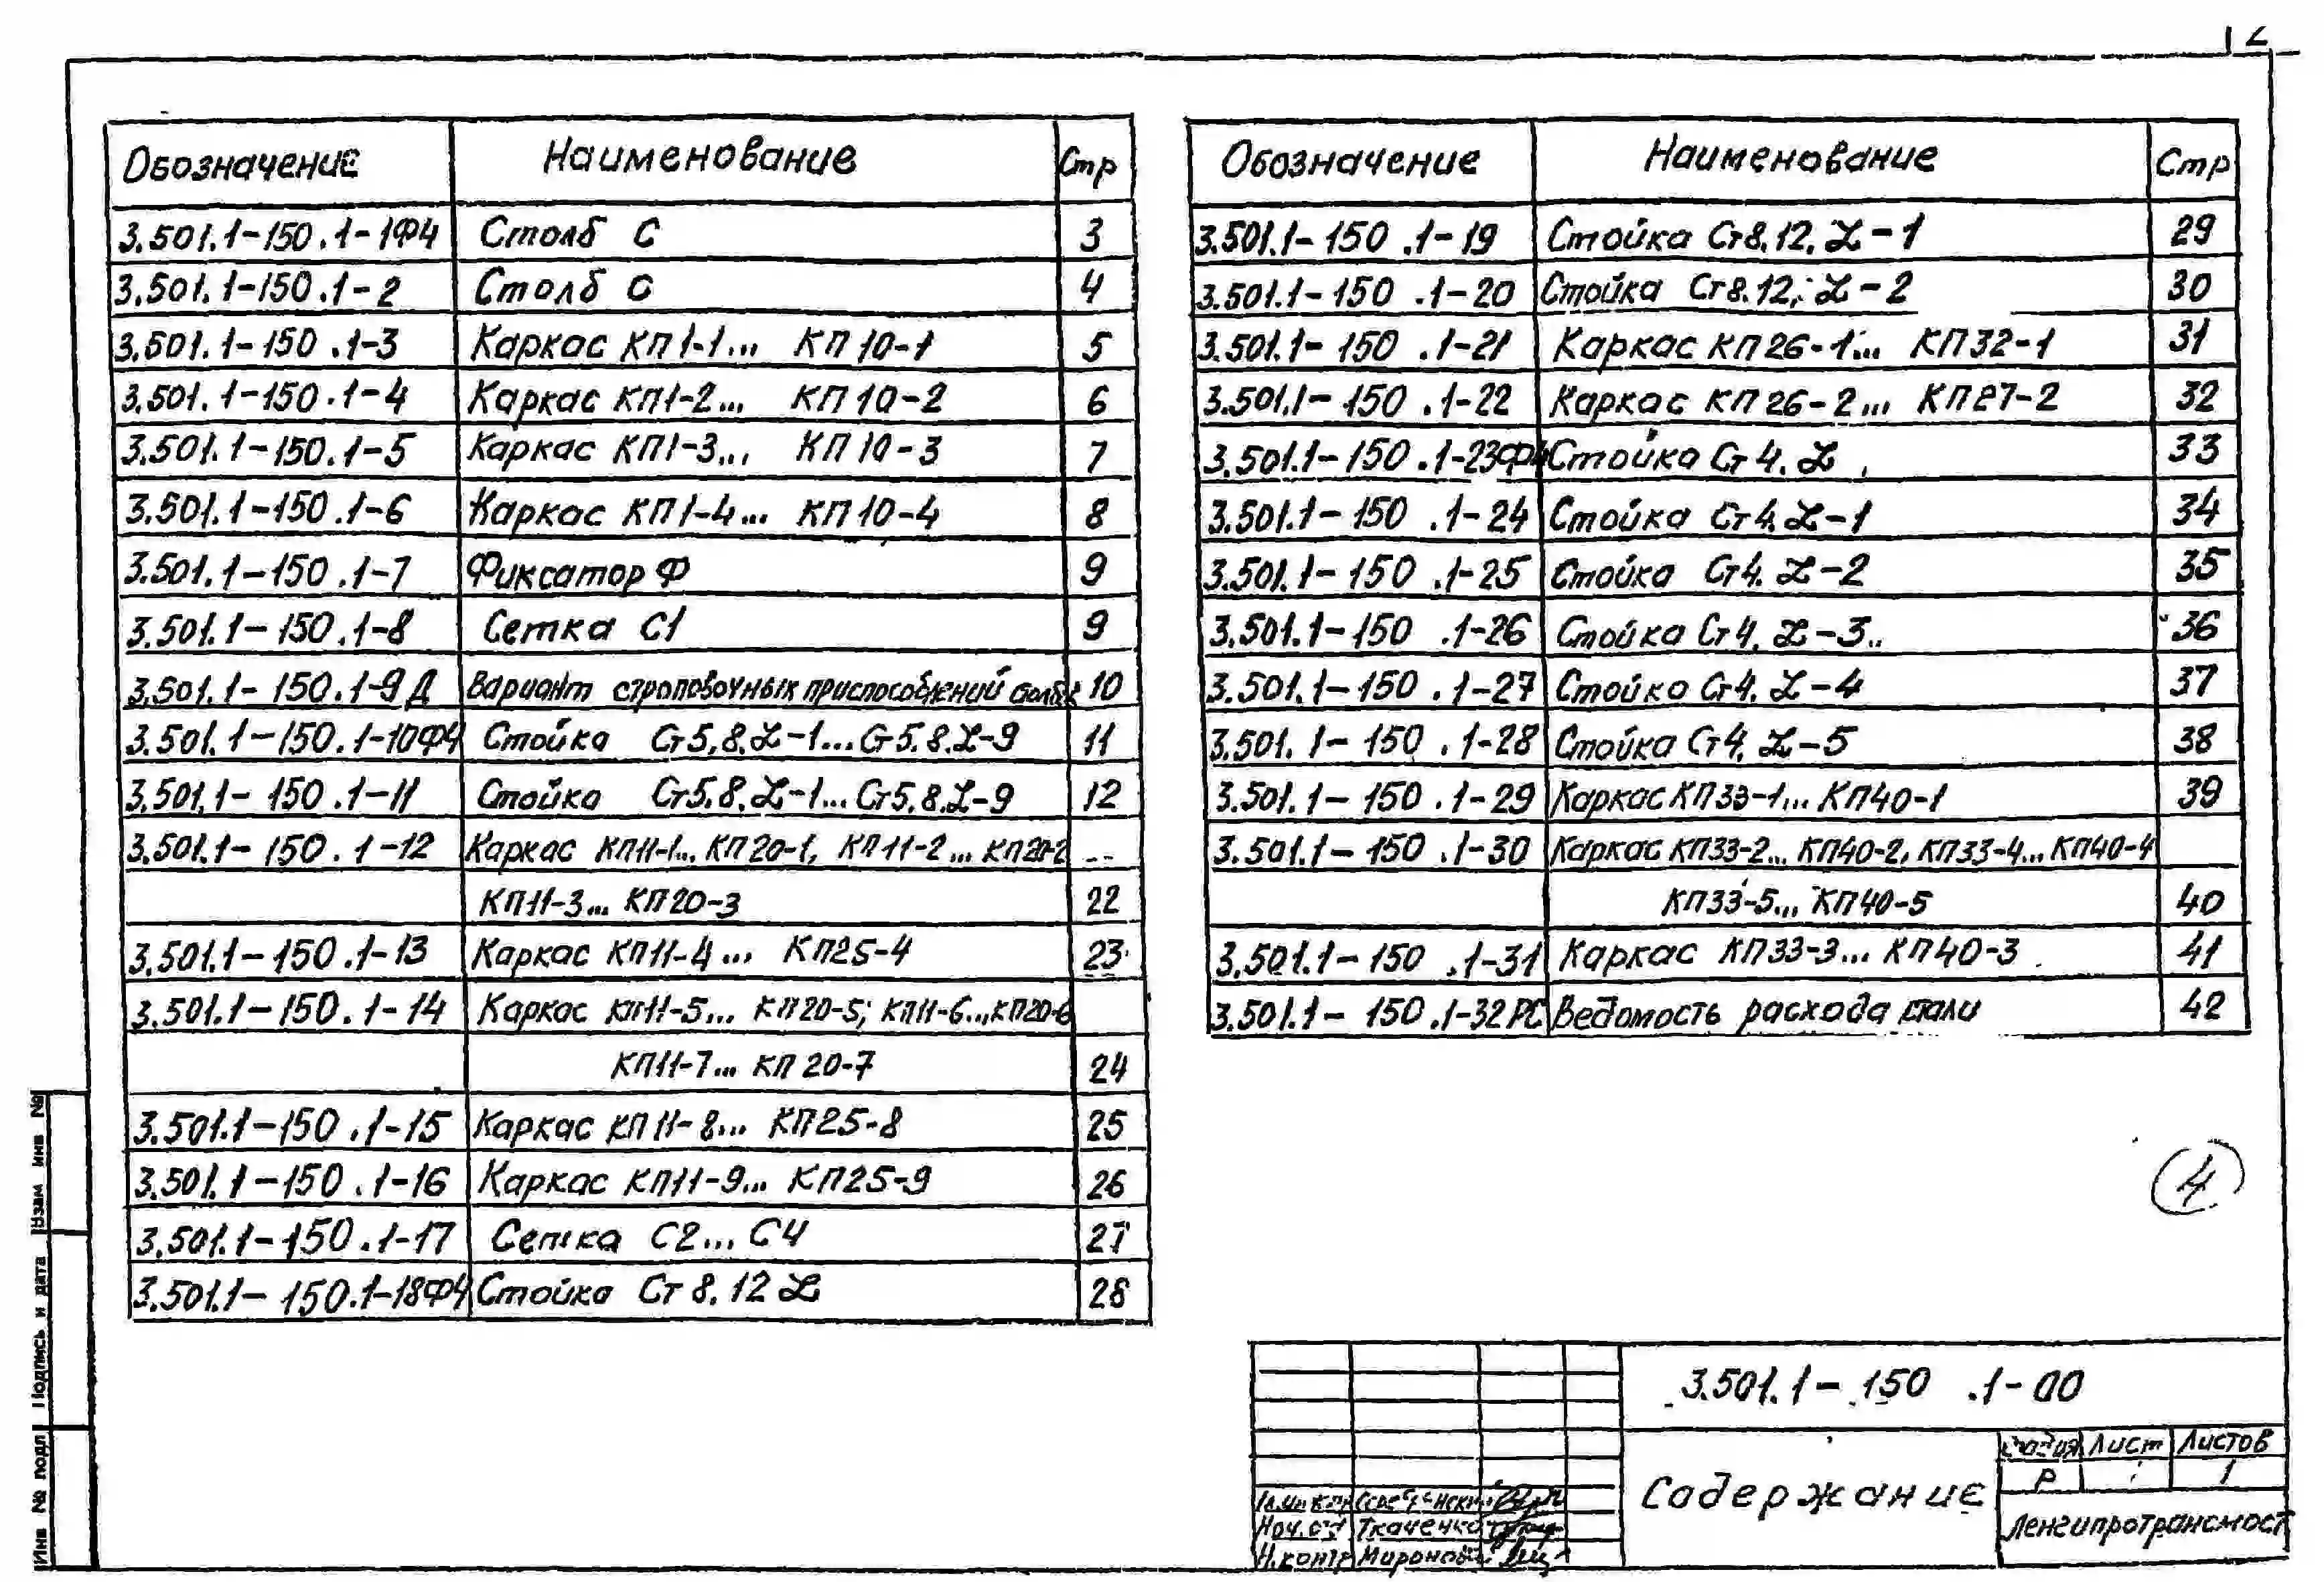 2
Обозначение Наименование Стр
3.501.1-150.1-1Ф4 Столб С 3
3.501.1-150.1-2 Столб С 4
3.501.1-150.1-3 Каркас КП1-1... КП10-1 5
3.501.1-150.1-4 Каркас КП1-2... КП10-2 6
3.501.1-150.1-5 Каркас КП1-3... КП10-3 7
3.501.1-150.1-6 Каркас КП1-4... КП10-4 8
3.501.1-150.1-7 Фиксатор Ф 9
3.501.1-150.1-8 Сетка С1 9
3.501.1-150.1-9Д Вариант строповочных приспособлений 10
3.501.1-150.1-10Ф4 Стойка Ст5.8.L-1...Ст5.8.L-9 11
3.501.1-150.1-11 Стойка Ст5.8.L-1...Ст5.8.L-9 12
3.501.1-150.1-12 Каркас КП11-1... КП20-1, КП11-2... КП20-2
КП11-3... КП20-3 22
3.501.1-150.1-13 Каркас КП11-4... КП25-4 23
3.501.1-150.1-14 Каркас КП11-5... КП20-5; КП11-6...КП20-6
КП11-7... КП20-7 24
3.501.1-150.1-15 Каркас КП11-8... КП25-8 25
3.501.1-150.1-16 Каркас КП11-9... КП25-9 26
3.501.1-150.1-17 Сетка С2...С4 27
3.501.1-150.1-18Ф4 Стойка Ст8.12 L 28
Обозначение Наименование Стр
3.501.1-150.1-19 Стойка Ст8.12.L-1 29
3.501.1-150.1-20 Стойка Ст8.12.L-2 30
3.501.1-150.1-21 Каркас КП26-1... КП32-1 31
3.501.1-150.1-22 Каркас КП26-2... КП27-2 32
3.501.1-150.1-23Ф4 Стойка Ст4.L 33
3.501.1-150.1-24 Стойка Ст4.L-1 34
3.501.1-150.1-25 Стойка Ст4.L-2 35
3.501.1-150.1-26 Стойка Ст4.L-3 36
3.501.1-150.1-27 Стойка Ст4.L-4 37
3.501.1-150.1-28 Стойка Ст4.L-5 38
3.501.1-150.1-29 Каркас КП33-1... КП40-1 39
3.501.1-150.1-30 Каркас КП33-2... КП40-2, КП33-4... КП40-4
КП33-5... КП40-5 40
3.501.1-150.1-31 Каркас КП33-3... КП40-3 41
3.501.1-150.1-32РС Ведомость расхода стали 42
4
Взам инв №
Подпись и дата
Инв № подл
3.501.1-150.1-00
Содержание
Стадия Лист Листов
Р 1
Ленгипротрансмост
Нач.отд Ткаченко
Н.контр Миронова